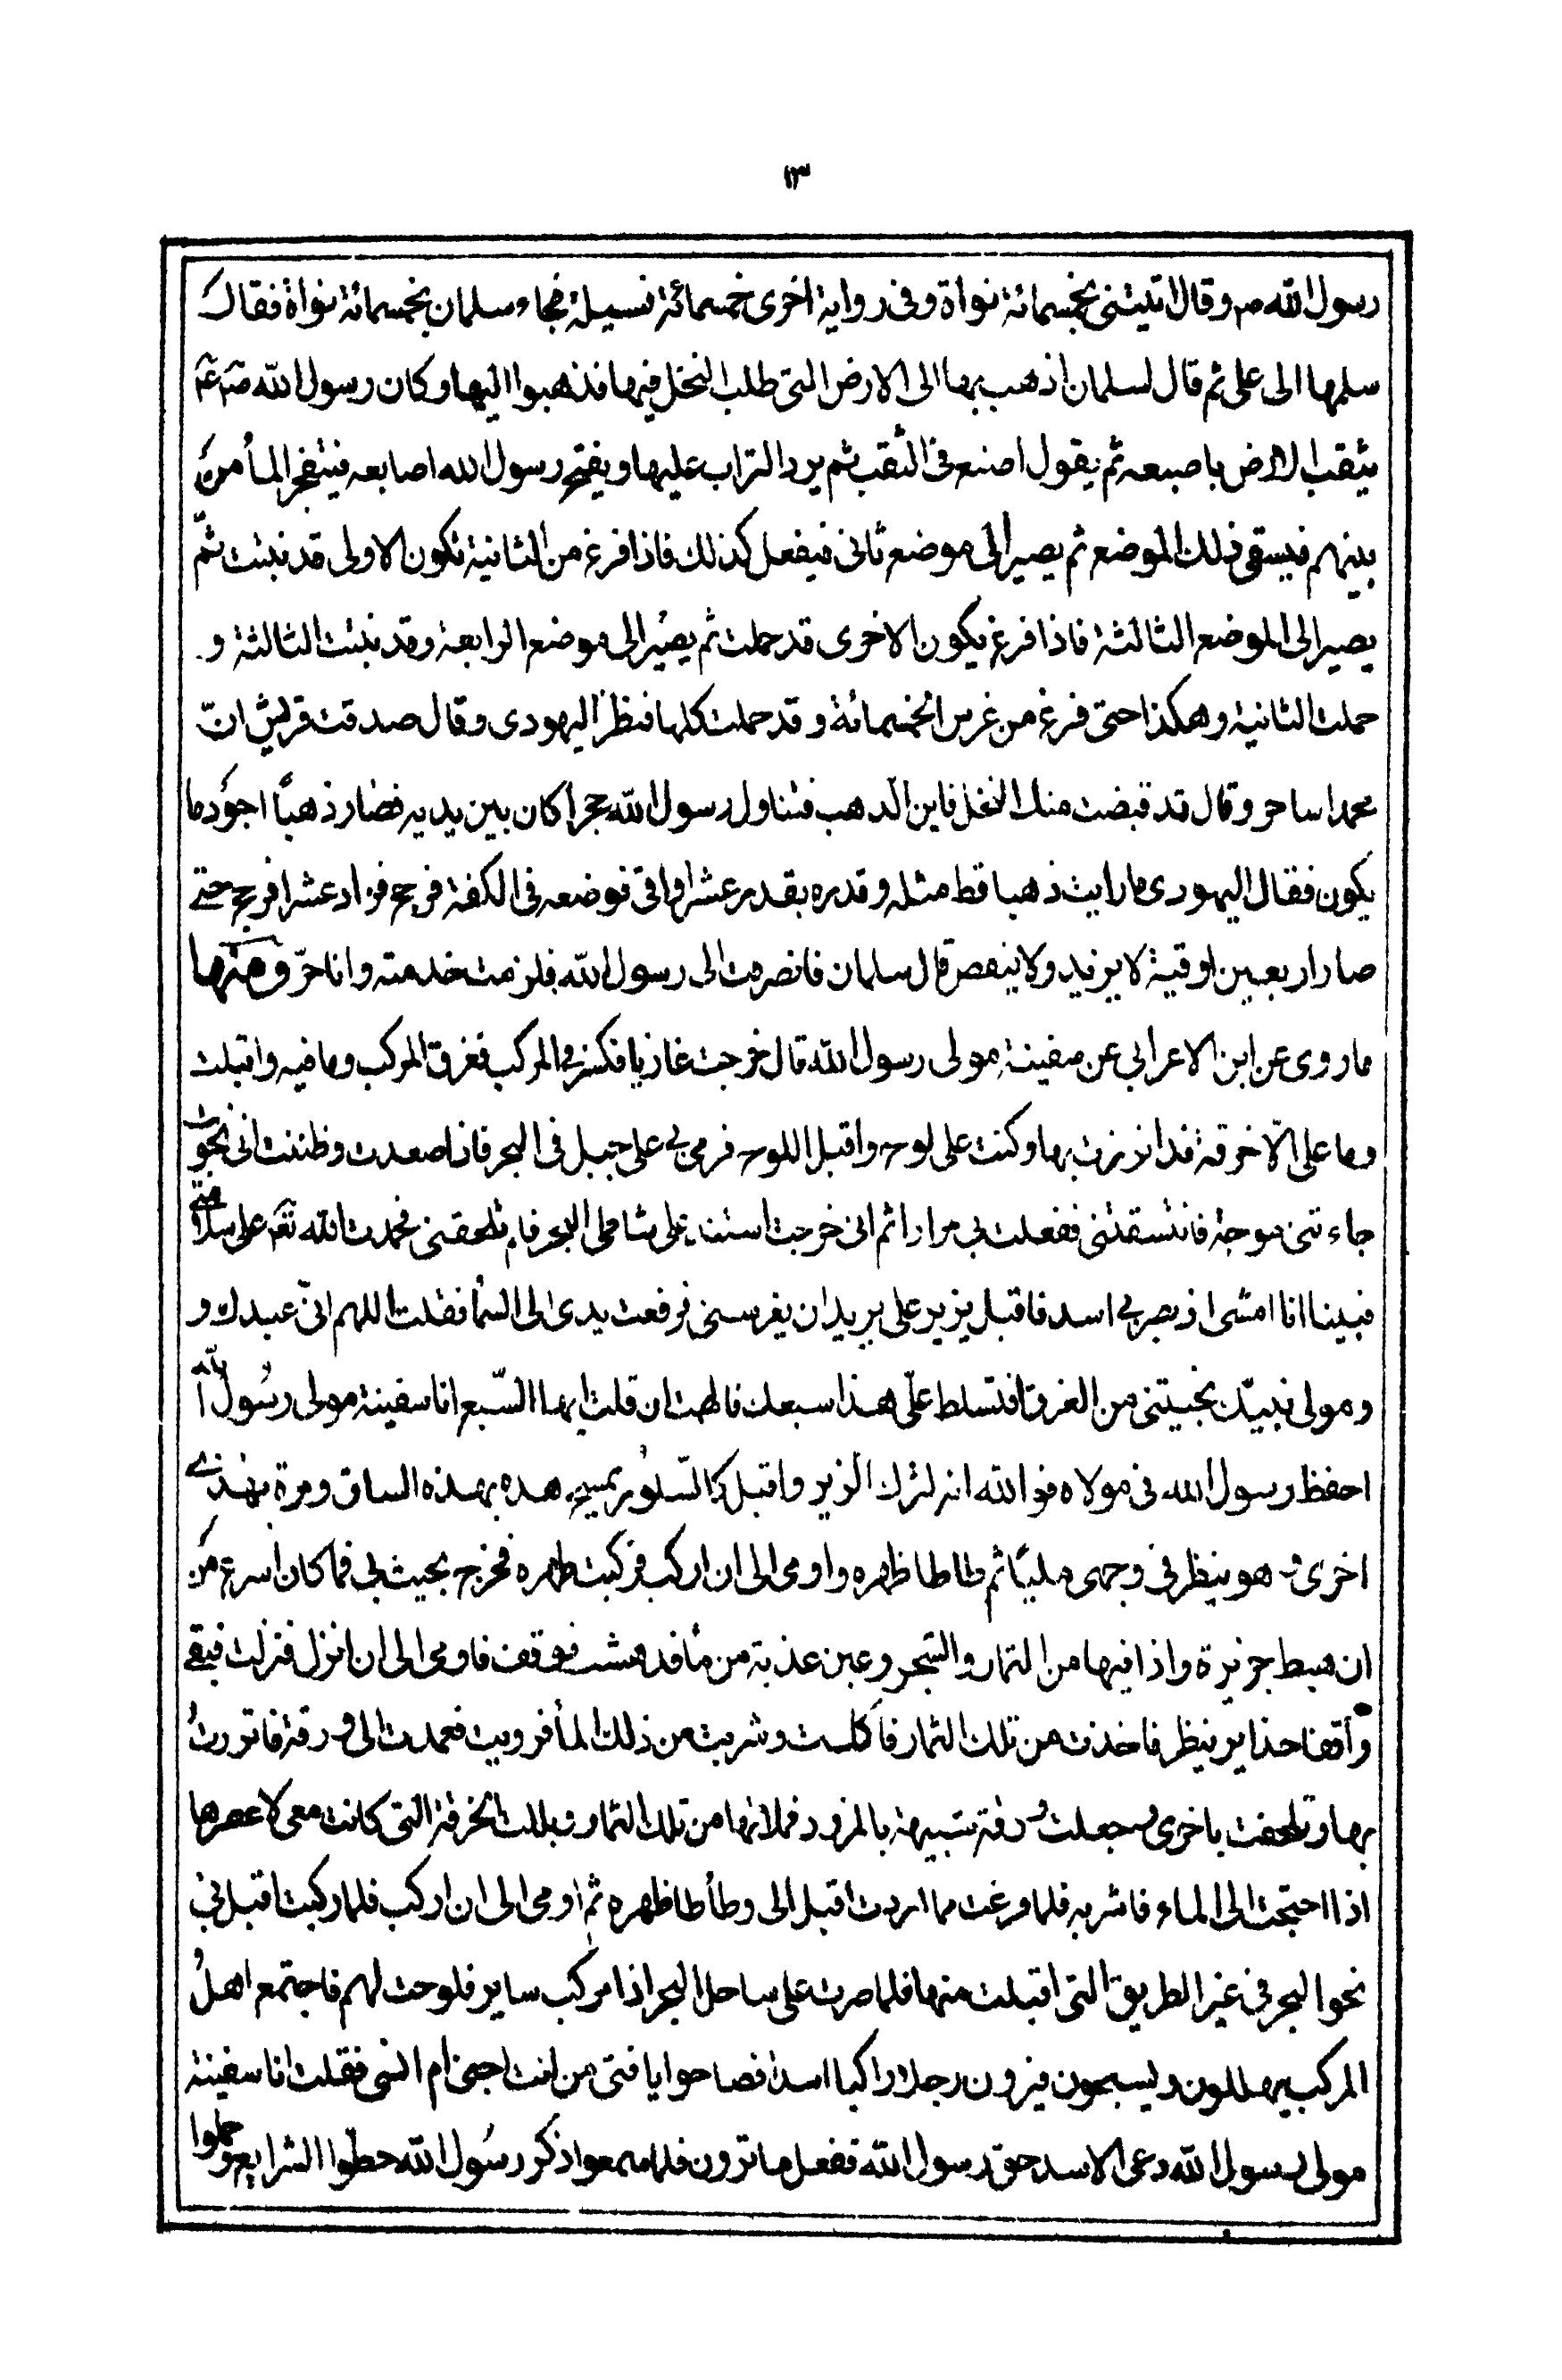 ١٣
رسول الله ص وقال اتيتنى بخمسمائة نواة وفى رواية اخرى خمسمائة نسيلة فجاء سلمان بخمسمائة نواة فقال
سلمها الى على ثم قال لسلمان اذهب بها الى الارض التى طلب النخل فيها فذهبوا اليها وكان رسول الله
يثقب الارض باصبعه ثم يقول اصنع فى الثقب ثم يرد التراب عليها ويفتح رسول الله اصابعه فينفجر المأ من
بينهم فيسقى ذلك الموضع ثم يصير الى موضع ثانى فيفعل كذلك فاذا فرغ من الثانية تكون الاولى قد نبتت ثمّ
يصير الى الموضع الثالثة فاذا فرغ يكون الاخرى قد حملت ثم يصير الى موضع الرابعة وقد نبتت الثالثة و
حملت الثانية وهكذا حتى فرغ من غرس الخمسمائة وقد حملت كلها فنظر اليهودى وقال صدقت قريش انّ
محمدا ساحر وقال قد قبضت منك النخل فاين الذهب فتناول رسول الله حجرا كان بين يديه فصار ذهبًا اجود ما
يكون فقال اليهودى ما رايت ذهبا قط مثله وقدره بقدر عشر اواقى فوضعه فى الكفة فرجح فزاد عشرا فرجح حتى
صار اربعين اوقية لا يزيد ولا ينقص قال سلمان فانصرفت الى رسول الله فلزمت خدمته وانا حرّ ومنها
ما روى عن ابن الاعرابى عن سفينة مولى رسول الله قال خرجت غازيا فكسر فى المركب فغرق المركب وما فيه واقبلت
وما على الّا خرقة قد اتزرت بها وكنت على لوح واقبل اللوح فرمى بى على جبل فى البحر فاذا صعدت وظننت انى نجوت
جاءتنى موجة فانتسفتنى ففعلت بى مرارا ثم انى خرجت استند على شاطى البحر فلم تلحقنى فحمدت الله تعم على سلامتى
فبينا انا امشى اذ بصر بى اسد فاقبل يزير على يريد ان يفرسنى فرفعت يدى الى السمأ فقلت اللهم انى عبدك و
ومولى نبيك نجيتنى من الغرق افتسلط علّى هذا سبعك فالهمت ان قلت ايها السّبع انا سفينة مولى رسول الله
احفظ رسول الله فى مولاه فو الله انه لترك الزير واقبل كالسنور يمسح هده بهذه الساق ومرة بهذى
اخرى وهو ينظر فى وجهى مليًا ثم طاطا ظهره واومى الى ان اركب فركبت ظهره فخرج بحيث بى فما كان اسرع من
ان هبط جزيرة واذا فيها من الثمار والشجر وعين عذبة من مأ فدهشت فوقف فاومى الى ان انزل فنزلت فبقى
واقفا حذاير ينظر فاخذت من تلك الثمار فاكلت وشربت من ذلك المأ فرويت فعمدت الى ورقة فاتزرت
بها وتلحفت باخرى وجعلت ورقة شبيهة بالمزود فملأتها من تلك الثمار وبللت الخرقة التى كانت معى لاعصرها
اذا احتجت الى الماء فاشربه فلما فرغت مما اردت اقبل الى وطأطا ظهره ثم اومى الى ان اركب فلما ركبت اقبل بى
نحو البحر فى غير الطريق التى اقبلت منها فلما صرت على ساحل البحر اذا مركب ساير فلوحت لهم فاجتمع اهل
المركب يهللون ويسبحون فيرون رجلا راكبا اسدا فصاحوا يا فتى من انت اجنى ام انسى فقلت انا سفينة
مولى رسول الله دعى الاسد حق رسول الله ففعل ما ترون فلما سمعوا ذكر رسول الله حطّوا الشرايع وحملوا